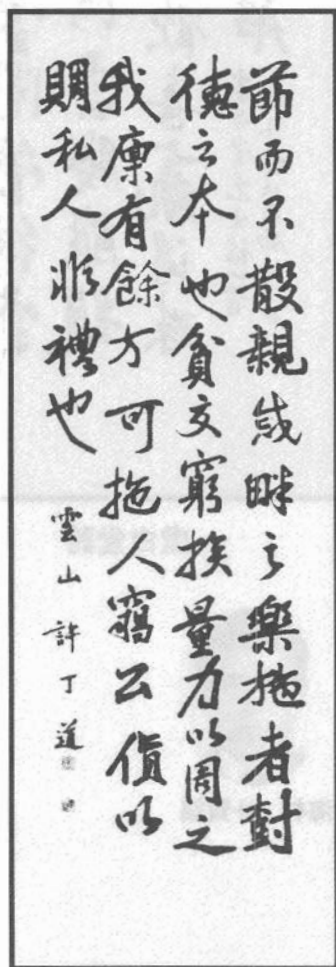 節而不散親戚畔之樂施者樹
德之本也貧交窮族量力以周之
我廩有餘方可施人竊公貨以
賙私人非禮也
雲山許丁道